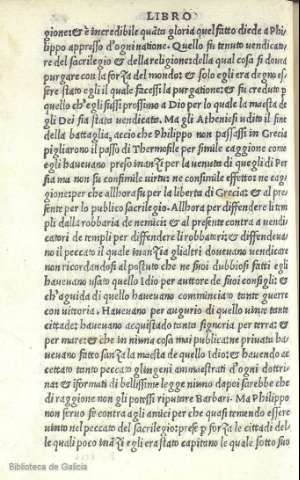 LIBRO
gione: & è incredibile quāta gloria quel fatto diede a Phi
lippo appresso d'ogni natione. Quello fu tenuto vendicato
re del sacrilegio & della religione: della qual cosa si doura
purgare con la forza del mondo: & solo egli era degno es
sere stato egli il quale facessi la purgatione: & fu creduto p
quello ch'egli fussi prossimo a Dio per lo quale la maesta de
gli Dei sia stata vendicata. Ma gli Atheniesi udito il fine
della battaglia, accio che Philippo non passassi in Grecia
pigliarono il passo di Thermofile per simile caggione come
egli haueuano preso inanzi per la venuta di quegli di Per
sia ma non su consimile virtu: ne consimile effetto: ne cag
gione: per che allhora fu per la liberta di Grecia: & al pre
sente per lo publico sacrilegio. Allhora per diffendere li tem
pli dalla robbaria de nemici: & al presente contra a vendi
catori de templi per diffendere li robbatori: & diffendeua
no il peccato il quale inanzi gli altri doueuano vendicare
non ricordandosi al postuto che ne suoi dubbiosi fatti egli
haueuano usato quello Idio per auttore de suoi consigli: &
ch'a guida di quello haueuano comminciato tante guerre
con vittoria. Haueuano per augurio di quello vinto tante
cittade: haueuano acquistado tanta signoria per terra: &
per mare: & che in niuna cosa mai publica: ne priuata ha
ueuano fatto sanza la maesta de quello Idio: & hauendo ac
cettato tanto peccato gl'ingeni ammaistrati d'ogni dottri
na: & iformati di bellissime legge niuno dapoi sarebbe che
di raggione non gli potessi riputare Barbari. Ma Philippo
non seruo fe contra agli amici per che quasi temendo essere
vinto nel peccato del sacrilegio: prese p forza le cittadi del
le quali poco ināzi egli era stato capitano le quale sotto suo
Biblioteca de Galicia